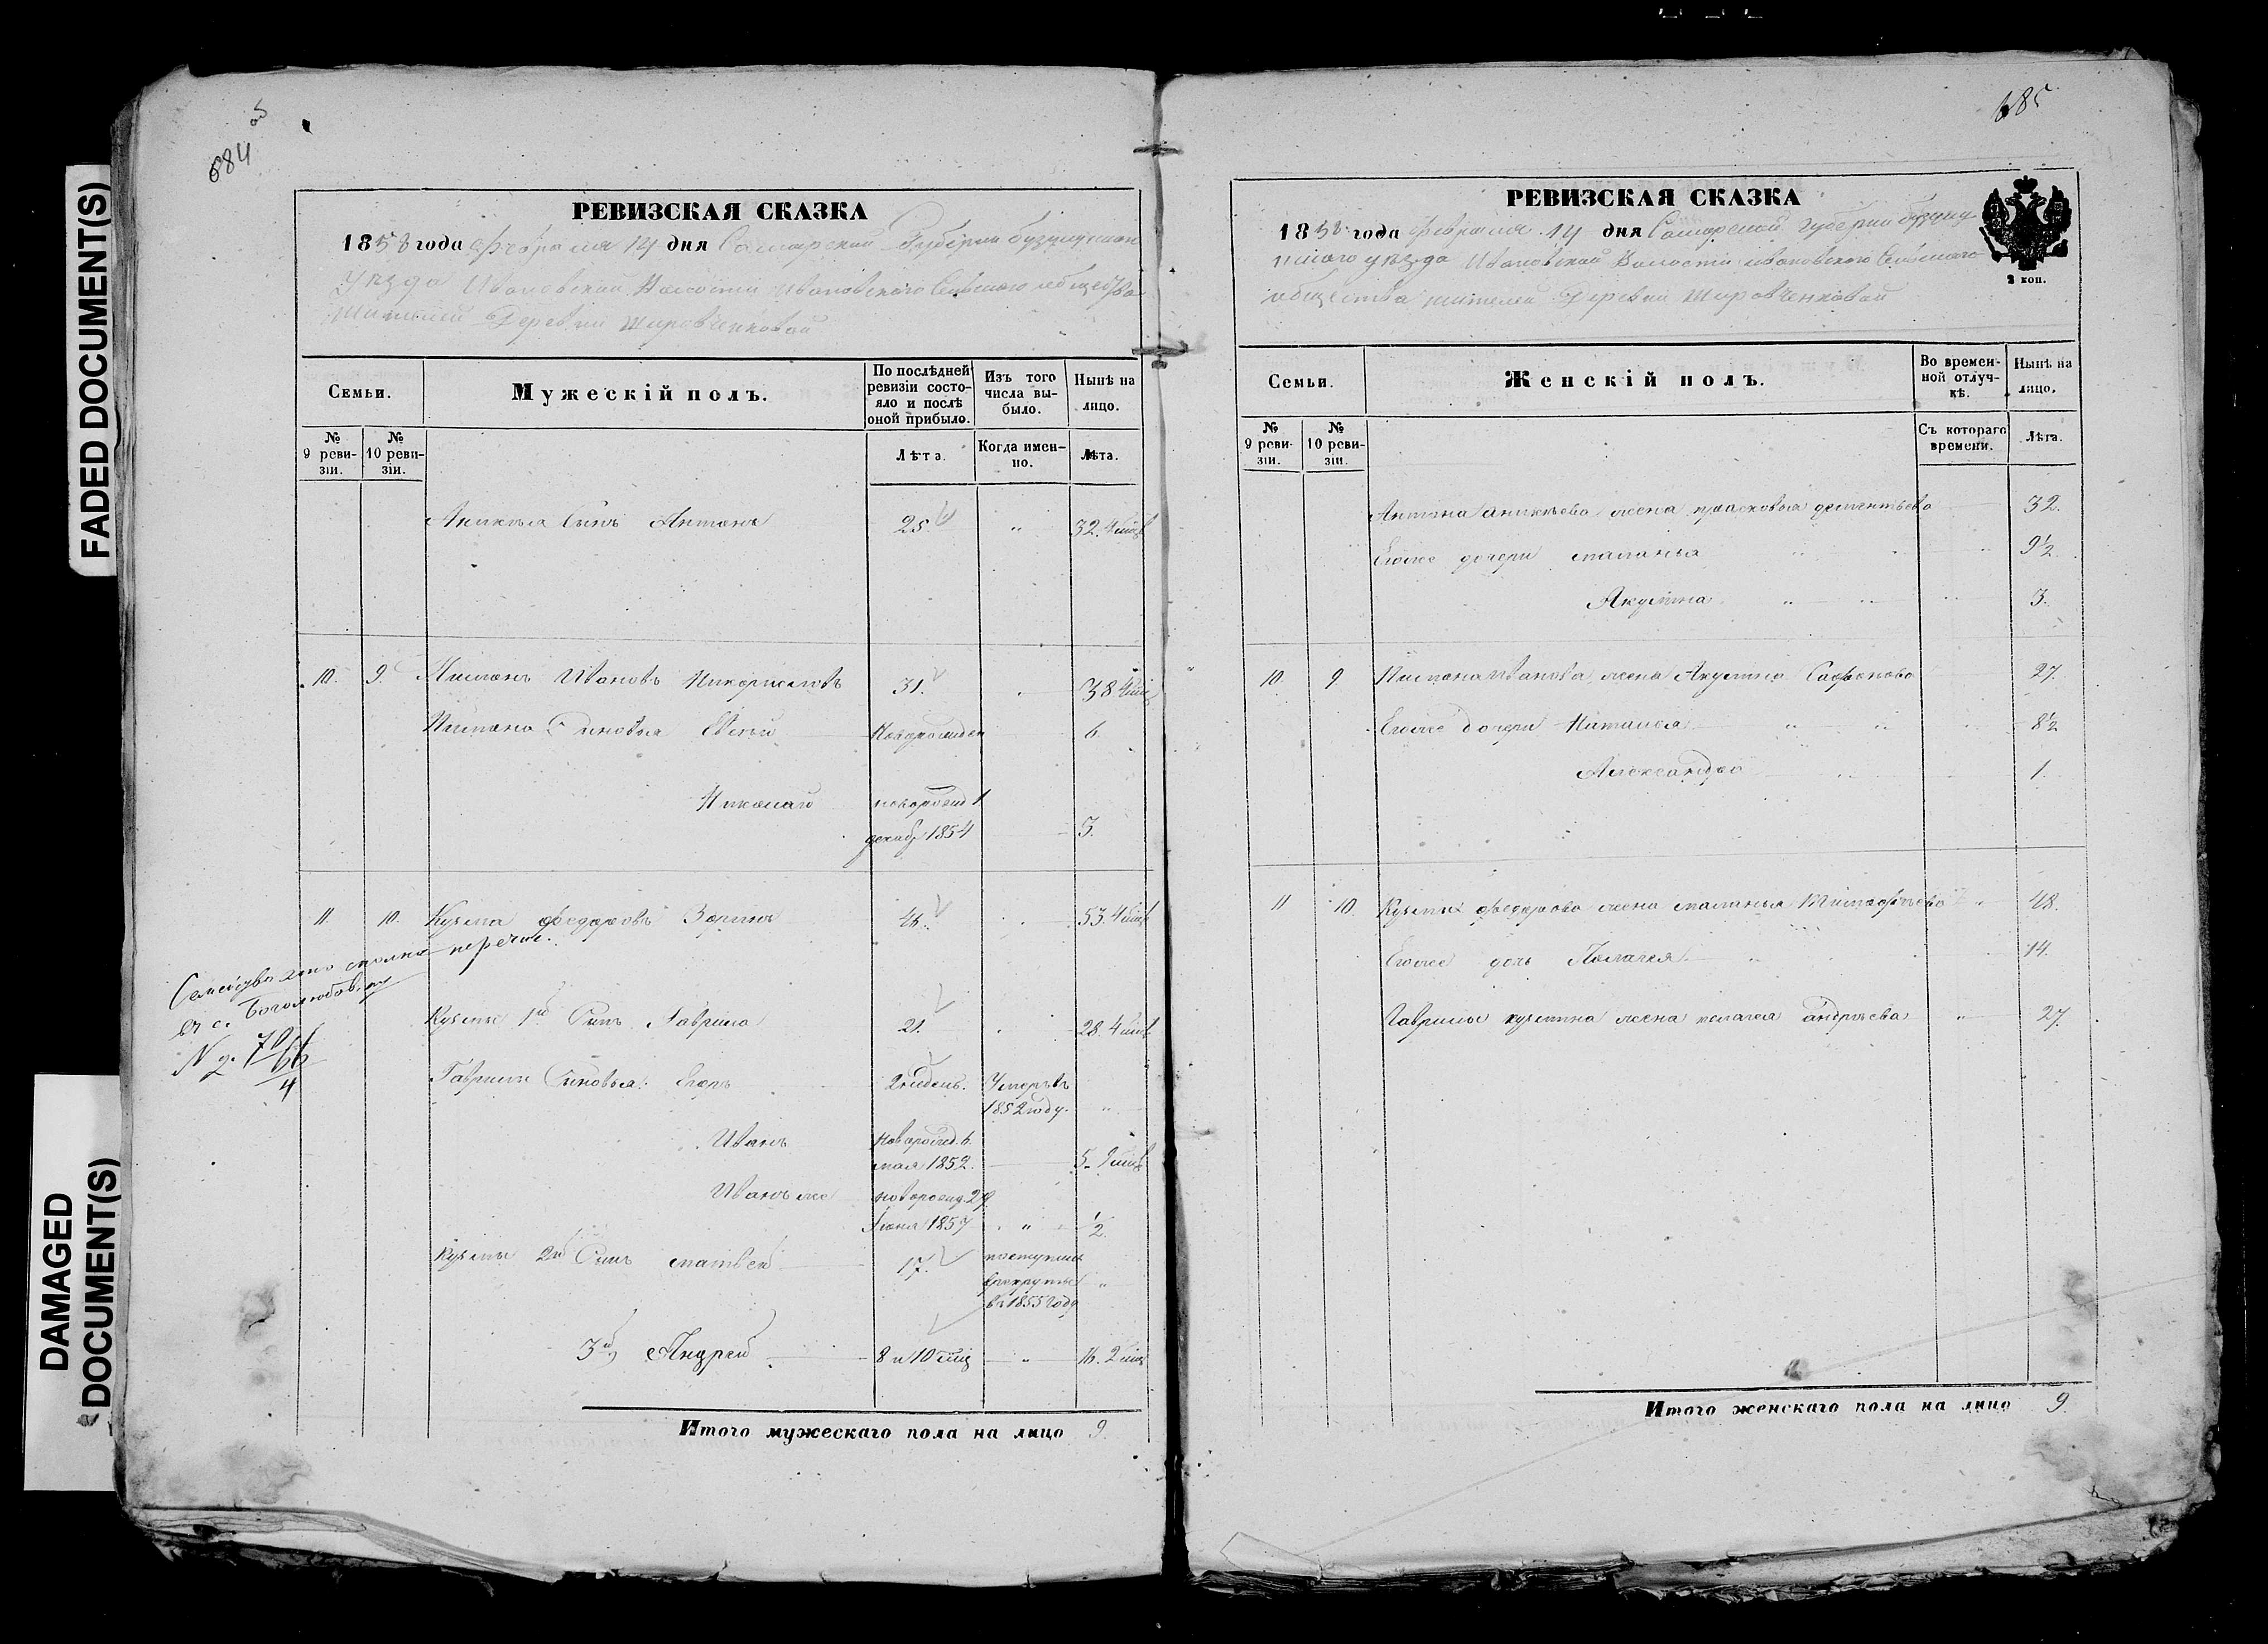 FADED DOCUMENT(S)
DAMAGED
DOCUMENT(S)
684
РЕВИЗСКАЯ СКАЗКА
1858 года февраля 14 дня Самарской Губерни бузулукскаго
уезда Ивановской Волости Ивановского Сельского общества
жителей Деревни
Семьи.
Мужескій полъ.
По послѣдней ревизіи состояло и послѣ оной прибыло.
Изъ того числа выбыло.
Нынѣ на лицо.
№ 9 ревизіи.
№ 10 ревизіи.
Лѣта.
Когда именно.
Лѣта.
Аникея Сынъ Антонъ 25 " 32. 4 мѣс
10. 9. Ивановъ 31. 38 4 мѣс
Сыновья 6
Николай новорожд 1
декаб 1854 3.
11 10. Кузьма Федоровъ Зоринъ 46. 53. 4 мѣс
Семейство это перечис.
въ с. Боголюбовку
Кузьмы 1й Сынъ Гаврила 21. 28. 4 мѣс
Гаврилы Сыновья: Егоръ 2 недель. Умеръ въ
1852 году. "
Иванъ Новорожд. 6
мая 1852. 5. 9 мѣс
Иванъ же новорожд. 29
Июня 1857 " 1/2
Кузьмы 2й Сынъ матвей 17. поступилъ
в рекруты "
въ 1855 году
3й Андрей 8 и 10 мѣц " 16. 2 мѣц
Итого мужескаго пола на лицо 9.
685
РЕВИЗСКАЯ СКАЗКА
1858 года февраля 14 дня Самарской губерни бузулу
кскаго уезда Ивановской Волости ивановского Сельского
общества жителей Деревни
2 коп.
Семьи.
Женскій полъ.
Во временной отлучкѣ.
Нынѣ на лицо.
№ 9 ревизіи.
№ 10 ревизіи.
Съ котораго времени.
Лѣта.
Антона аникеева жена прасковья дементьева 32.
Егоже дочери маланья 9 1/2
Акулина 3.
10 9 Иванова жена Акулина Сафонова 27.
Егоже дочери Наталья 8 1/2
Александра 1.
11 10. Кузьмы федорова жена маланья 48.
Егоже дочь Пелагея 14.
Гаврилы кузмина жена пелагея андреева " 27.
Итого женскаго пола на лицо 9.